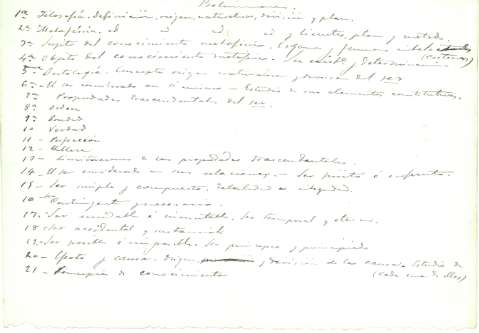 1ª Filosofía, definición, origen, naturaleza, división y plan.
2ª Metafísica, id id id id y fuentes, plan y método.
3ª Sujeto del conocimiento metafísico.
4ª Objeto del conocimiento metafísico. Su
5ª Ontología. Concepto origen naturaleza y división del ser
6ª El ser considerado en sí mismo - Estudio de sus elementos constitutivos.
7ª Propiedades trascendentales del ser.
8ª Orden
9ª Bondad
10 Verdad
11 - Perfección
12 - Belleza
13 - Limitaciones a las propiedades trascendentales.
14 - El ser considerado en sus relaciones. - Ser finito é infinito.
15 - Ser simple y compuesto. Totalidad é integridad.
16 - Contingente y necesario.
17. Ser mudable é inmutable. Ser temporal y eterno.
18 Ser accidental y sustancial
19. Ser posible é imposible. Ser principio y principiado
20 - Efecto y causa. Origen y división de las causas. Estudio de
21 - Principio de conocimiento (cada una de ellas)